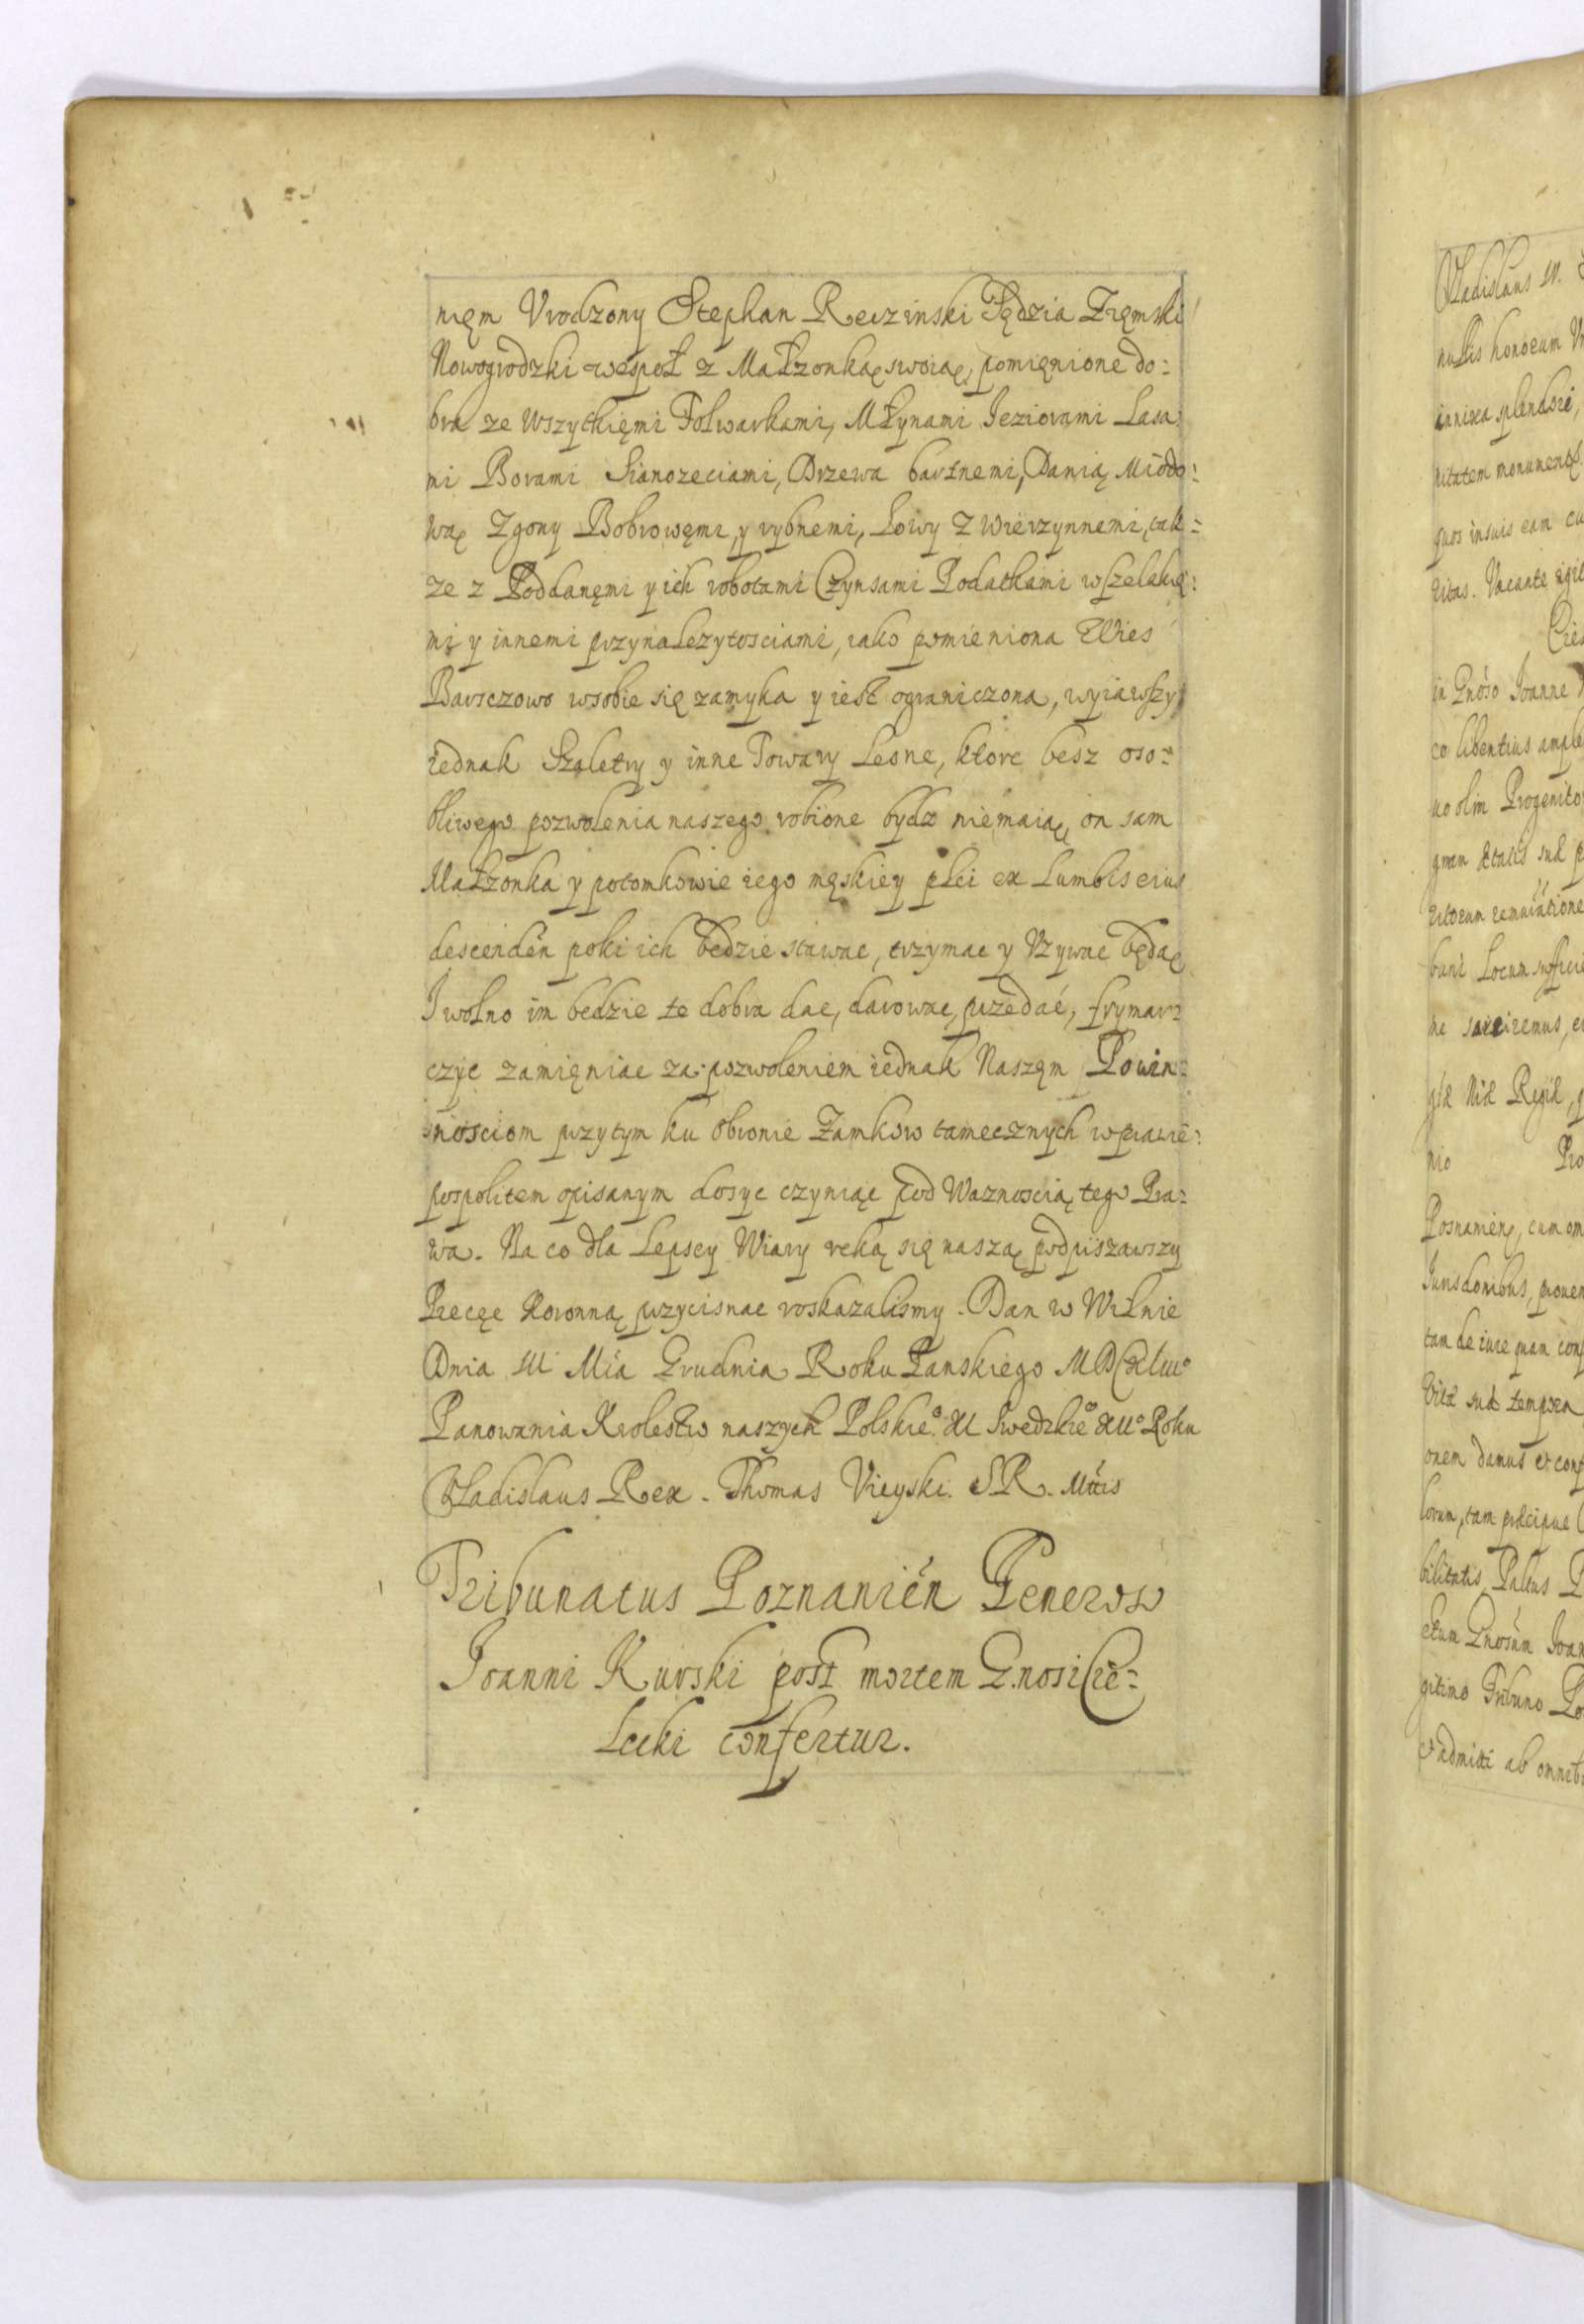 nięm Vrodzony Stephan Reczinski Sędzia Zięmski
Nowogrodzki wespoł z Małzonkąswoią, pomięnione do-
bra ze Wszytkięmi Folwarkami, Młynami Ieziorami Lasa
mi Borami Sianozeciami, Drzewa bartnemi, Danią Miodo-
wą Zgony Bobrowęmi, y rybnemi, Łowy Zwierzynnemi, tak-
ze z Poddanęmi y ich robotami Czynsami Podatkami wszelakię-
mi y innemi przynalezytosciami, iako pomieniona Wies
Barsczowo wsobie się zamyka y iest ograniczona, wyiąwszy
iednak Szaletry y inne Towary Lesne, ktore besz oso-
bliwego pozwolenia naszego robione bydz niemaią, on sam
Małzonka y potomkowie iego męskiey płci ex Lumbis eius
descendēn poki ich będzie stawac, trzymac y Vzywac będą
I wolno im bedzie te dobra dac, darowac, przedać, frymar-
czyc zamięniac za pozwoleniem iednak Naszęm Powin-
nosciom przytym ku obronie Zamkow tamecznych wprawie-
pospolitem opisanym dosyc czyniąc pod Waznoscią tego Pra-
wa. Na co dla Lepsey Wiary reką się naszą podpiszawszy
Piecęc Koronną przycisnac roskazalismy. Dan w Wilnie
Dnia III Mīa Grudnia Roku Panskiego
Panowania Krolestw naszych Polskie⁰ Swedzkie⁰ Roku
Vladislaus Rex. Thomas Vieyski. S R. Mttis
Tribunatus Poznaniēn Generoso
Ioanni Kurski post mortem G.nosi Cie-
Lecki confertur.
Vladislaus IV.
nullis honorum
innixa splendore,
quos insuis eam
ritas. Vacante
in Gnōso Ioanne
co libentius
uo olim
bant Locum
Posnaniēn, cum
Iurisdonibus,
tam de iure quam
Vitæ suæ tempora
onem damus et
lorum, tam præcipue
bilitatis
gitimo Tribuno
et admitti ab